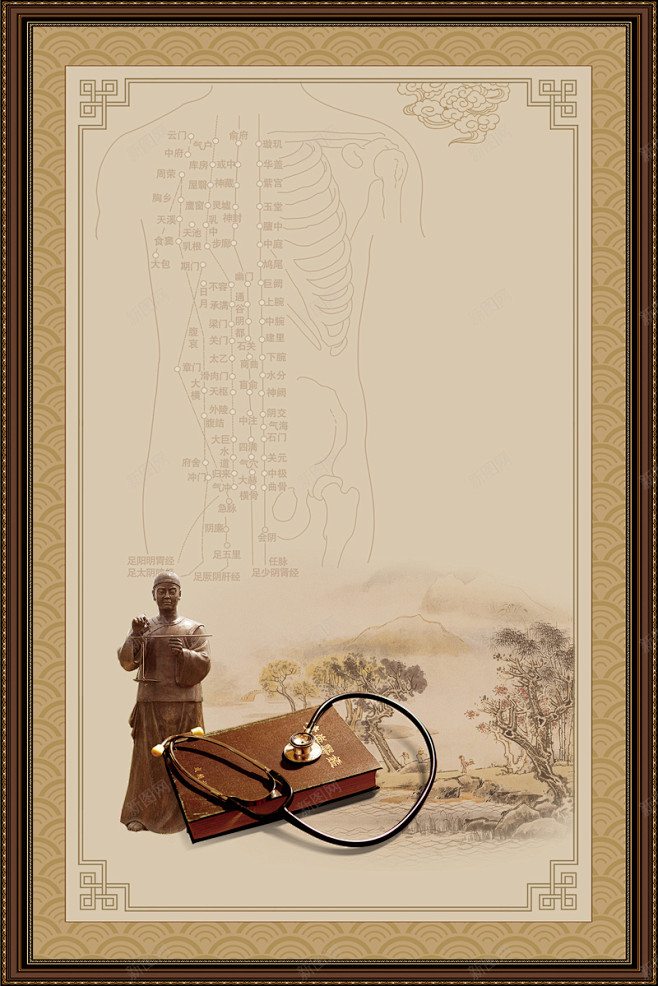 云门
俞府
气户
璇玑
中府
库房
或中
华盖
周荣
屋翳
神藏
紫宫
胸乡
膺窗
灵墟
玉堂
天溪
乳中
神封
天池
膻中
食窦
乳根
步廊
中庭
大包
期门
鸠尾
幽门
日月
不容
巨阙
通谷
承满
上脘
梁门
阴都
中脘
腹哀
关门
石关
建里
太乙
商曲
下脘
章门
滑肉门
水分
大横
天枢
肓俞
神阙
外陵
阴交
腹结
中注
气海
大巨
石门
水道
四满
府舍
气穴
关元
冲门
归来
大赫
中极
气冲
横骨
曲骨
急脉
阴廉
会阴
足五里
足阳明胃经
任脉
足太阴脾经
足厥阴肝经
足少阴肾经
新图网